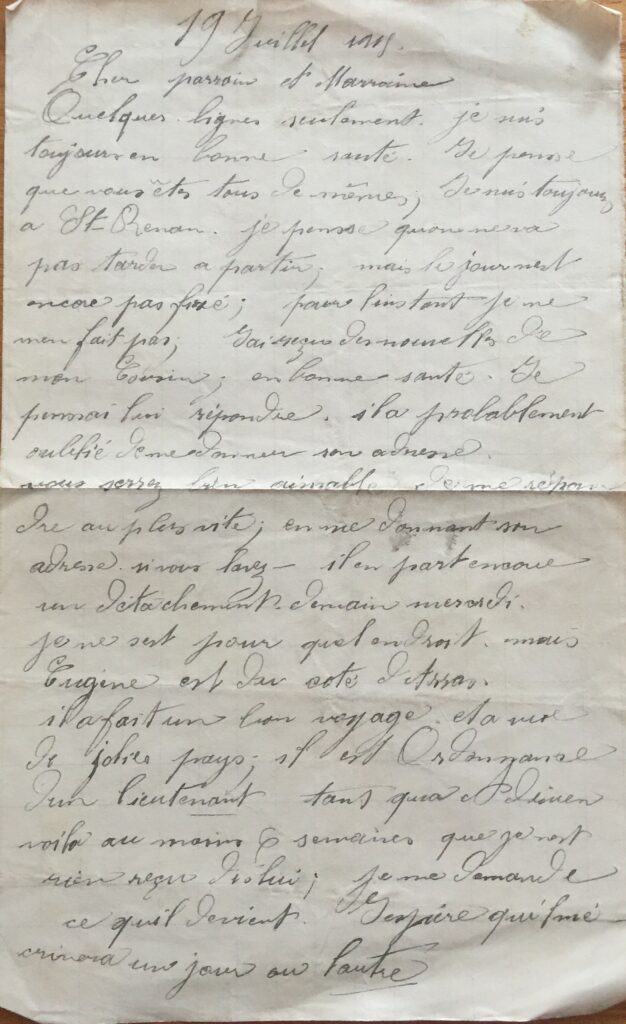 19 Juillet 1915.
Cher parrain et Marraine
Quelques lignes seulement. je suis
toujours en bonne santé. Je pense
que vous êtes tous de mêmes; Je suis toujours
a St Renan. je pensse quon ne va
pas tarder a partir; mais le jour nest
encore pas fixé; pour linstant je ne
men fait pas; Jai reçu des nouvelles de
mon Cousin; en bonne santé. Je
penssai lui répondre. il a probablement
oublié de me donner son adresse.
vous serrez bien aimable de me répon
dre au plus vite; en me donnant son
adresse. si vous lavez - il en part encore
un détachement demain mercredi.
je ne sest pour quel endroit. mais
Eugène est du coté d'Arras.
il a fait un bon voyage. et a vue
de jolies pays; il est Ordonnance
dun lieutenant tans qua
voila au moins 6 semaines que je nest
rien reçu de lui; je me demande
ce quil devient. Jespére qu'il mé-
crivera un jour ou lautre